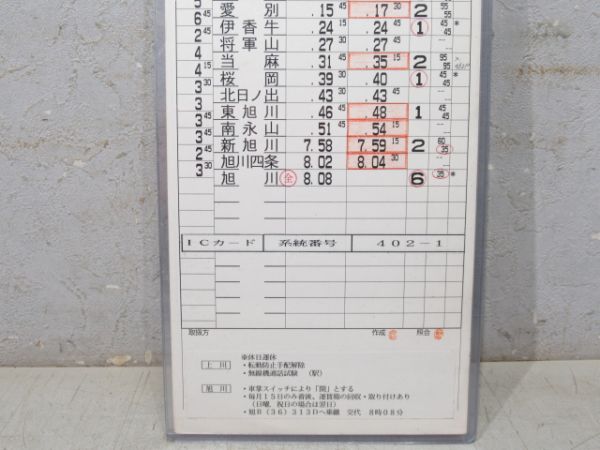 5 愛別 .15 45 .17 30 2 55 55
6 45 伊香牛 .24 15 .24 45 1 45 45 *
2 将軍山 .27 30 .27 45 … …
4 当麻 .31 45 .35 15 2 95 95
3 30 桜岡 .39 30 .40 1 45 45 *
3 北日ノ出 .43 30 .43 45 … …
3 東旭川 .46 45 .48 1 45 45
3 南永山 .51 45 .54 15 …
3 新旭川 7.58 7.59 15 2 60 35
2 45 旭川四条 8.02 8.04 30 …
3 30 旭川 全 8.08 6 35 *
ICカード 系統番号 402-1
取扱方 作成 照合
※休日運休
上川 ・転動防止手配解除
・無線機通話試験 (駅)
旭川 ・車掌スイッチにより「開」とする
・毎月15日のみ着後、運賃箱の回収・取り付けあり
(日曜、祝日の場合は翌日)
・旭B(36)313Dへ乗継 交代 8時08分